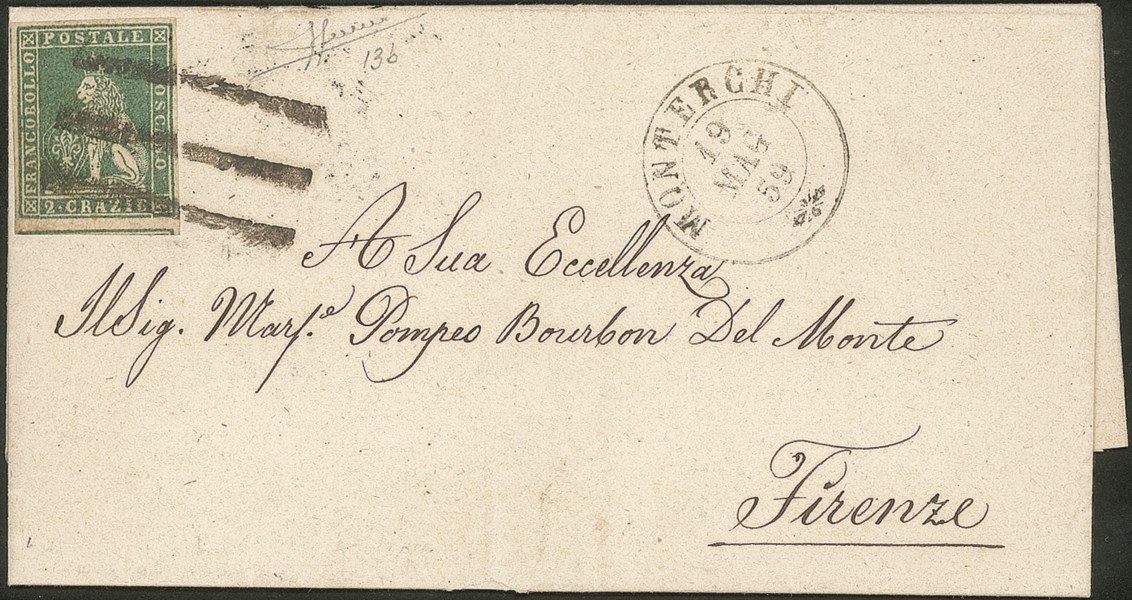 POSTALE
FRANCOBOLLO
TOSCANO
2 · CRAZIE
13b
MONTERCHI
19
MAG
59
A Sua Eccellenza
Il Sig. Mar.ᵉ Pompeo Bourbon Del Monte
Firenze